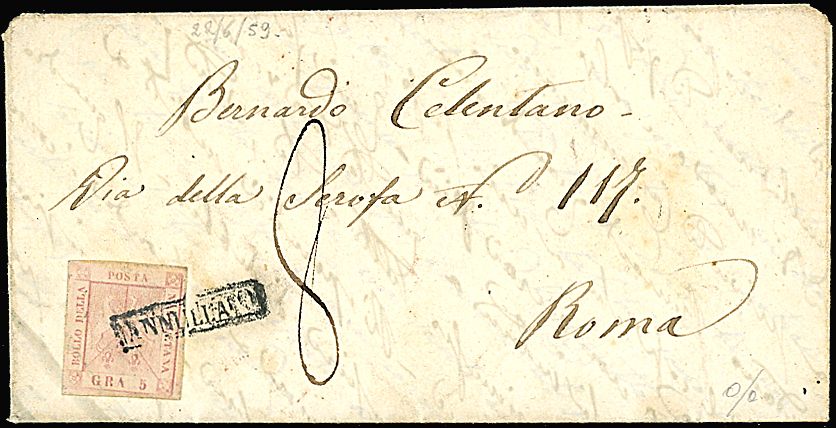 22/6/59.
Bernardo Celentano -
Via della Scrofa N. 117.
8
Roma
POSTA
BOLLO DELLA
GRA 5
ANNULLATO
o/o